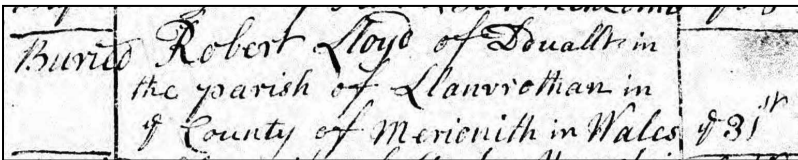 Buried Robert Lloyd of Dduallt in
the parish of Llanvrothan in
ye County of Merionith in Wales ye 31st